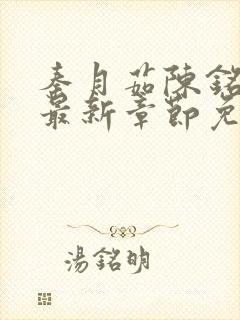 秦月茹陳銘
最新章節免
湯銘明